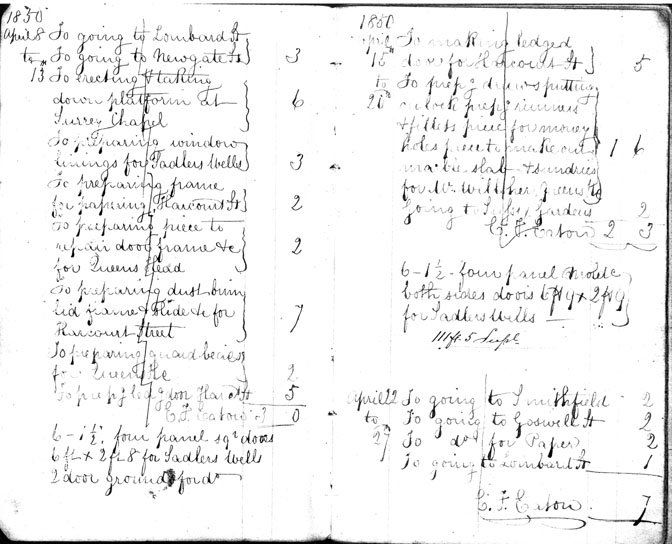 1850
April 8 To going to Lombard St
to To going to Newgate St 3
13 To erecting & taking
down platform at 6
Surrey Chapel
To preparing window
linings for Sadlers Wells 3
To preparing frame
for papering Harcourt St 2
To preparing piece to
repair door frame &c 2
for Queens Hedd
To preparing dust bin
lid frame & slide &c for 7
Harcourt Street
To preparing guard
for Queen 2
To prepg ledg door Harct St 5
C. F. Eaton 3 0
6 - 1 ½. four panel sqr doors
6 ft x 2 ft 8 for Sadlers Wells
2 door grounds for do
1850
April To making ledged
15th door for Harcourt St 5
to To prepg draw & putting
20th on lock prepg runners
& fillets piece for money
holes piece to make out 1 6
marble slab & sundries
for Mr
Going to Gardens 2
C. F. Eaton 2 3
6 - 1 ½ - four panel
both sides doors 6 ft 9 x 2 ft 9
for Sadlers Wells
111 ft. 5 Supl
April 22 To going to Smithfield 2
to To going to Goswell St 2
27 To do for Paper 2
To going to Lombard St 1
C. F. Eaton 7